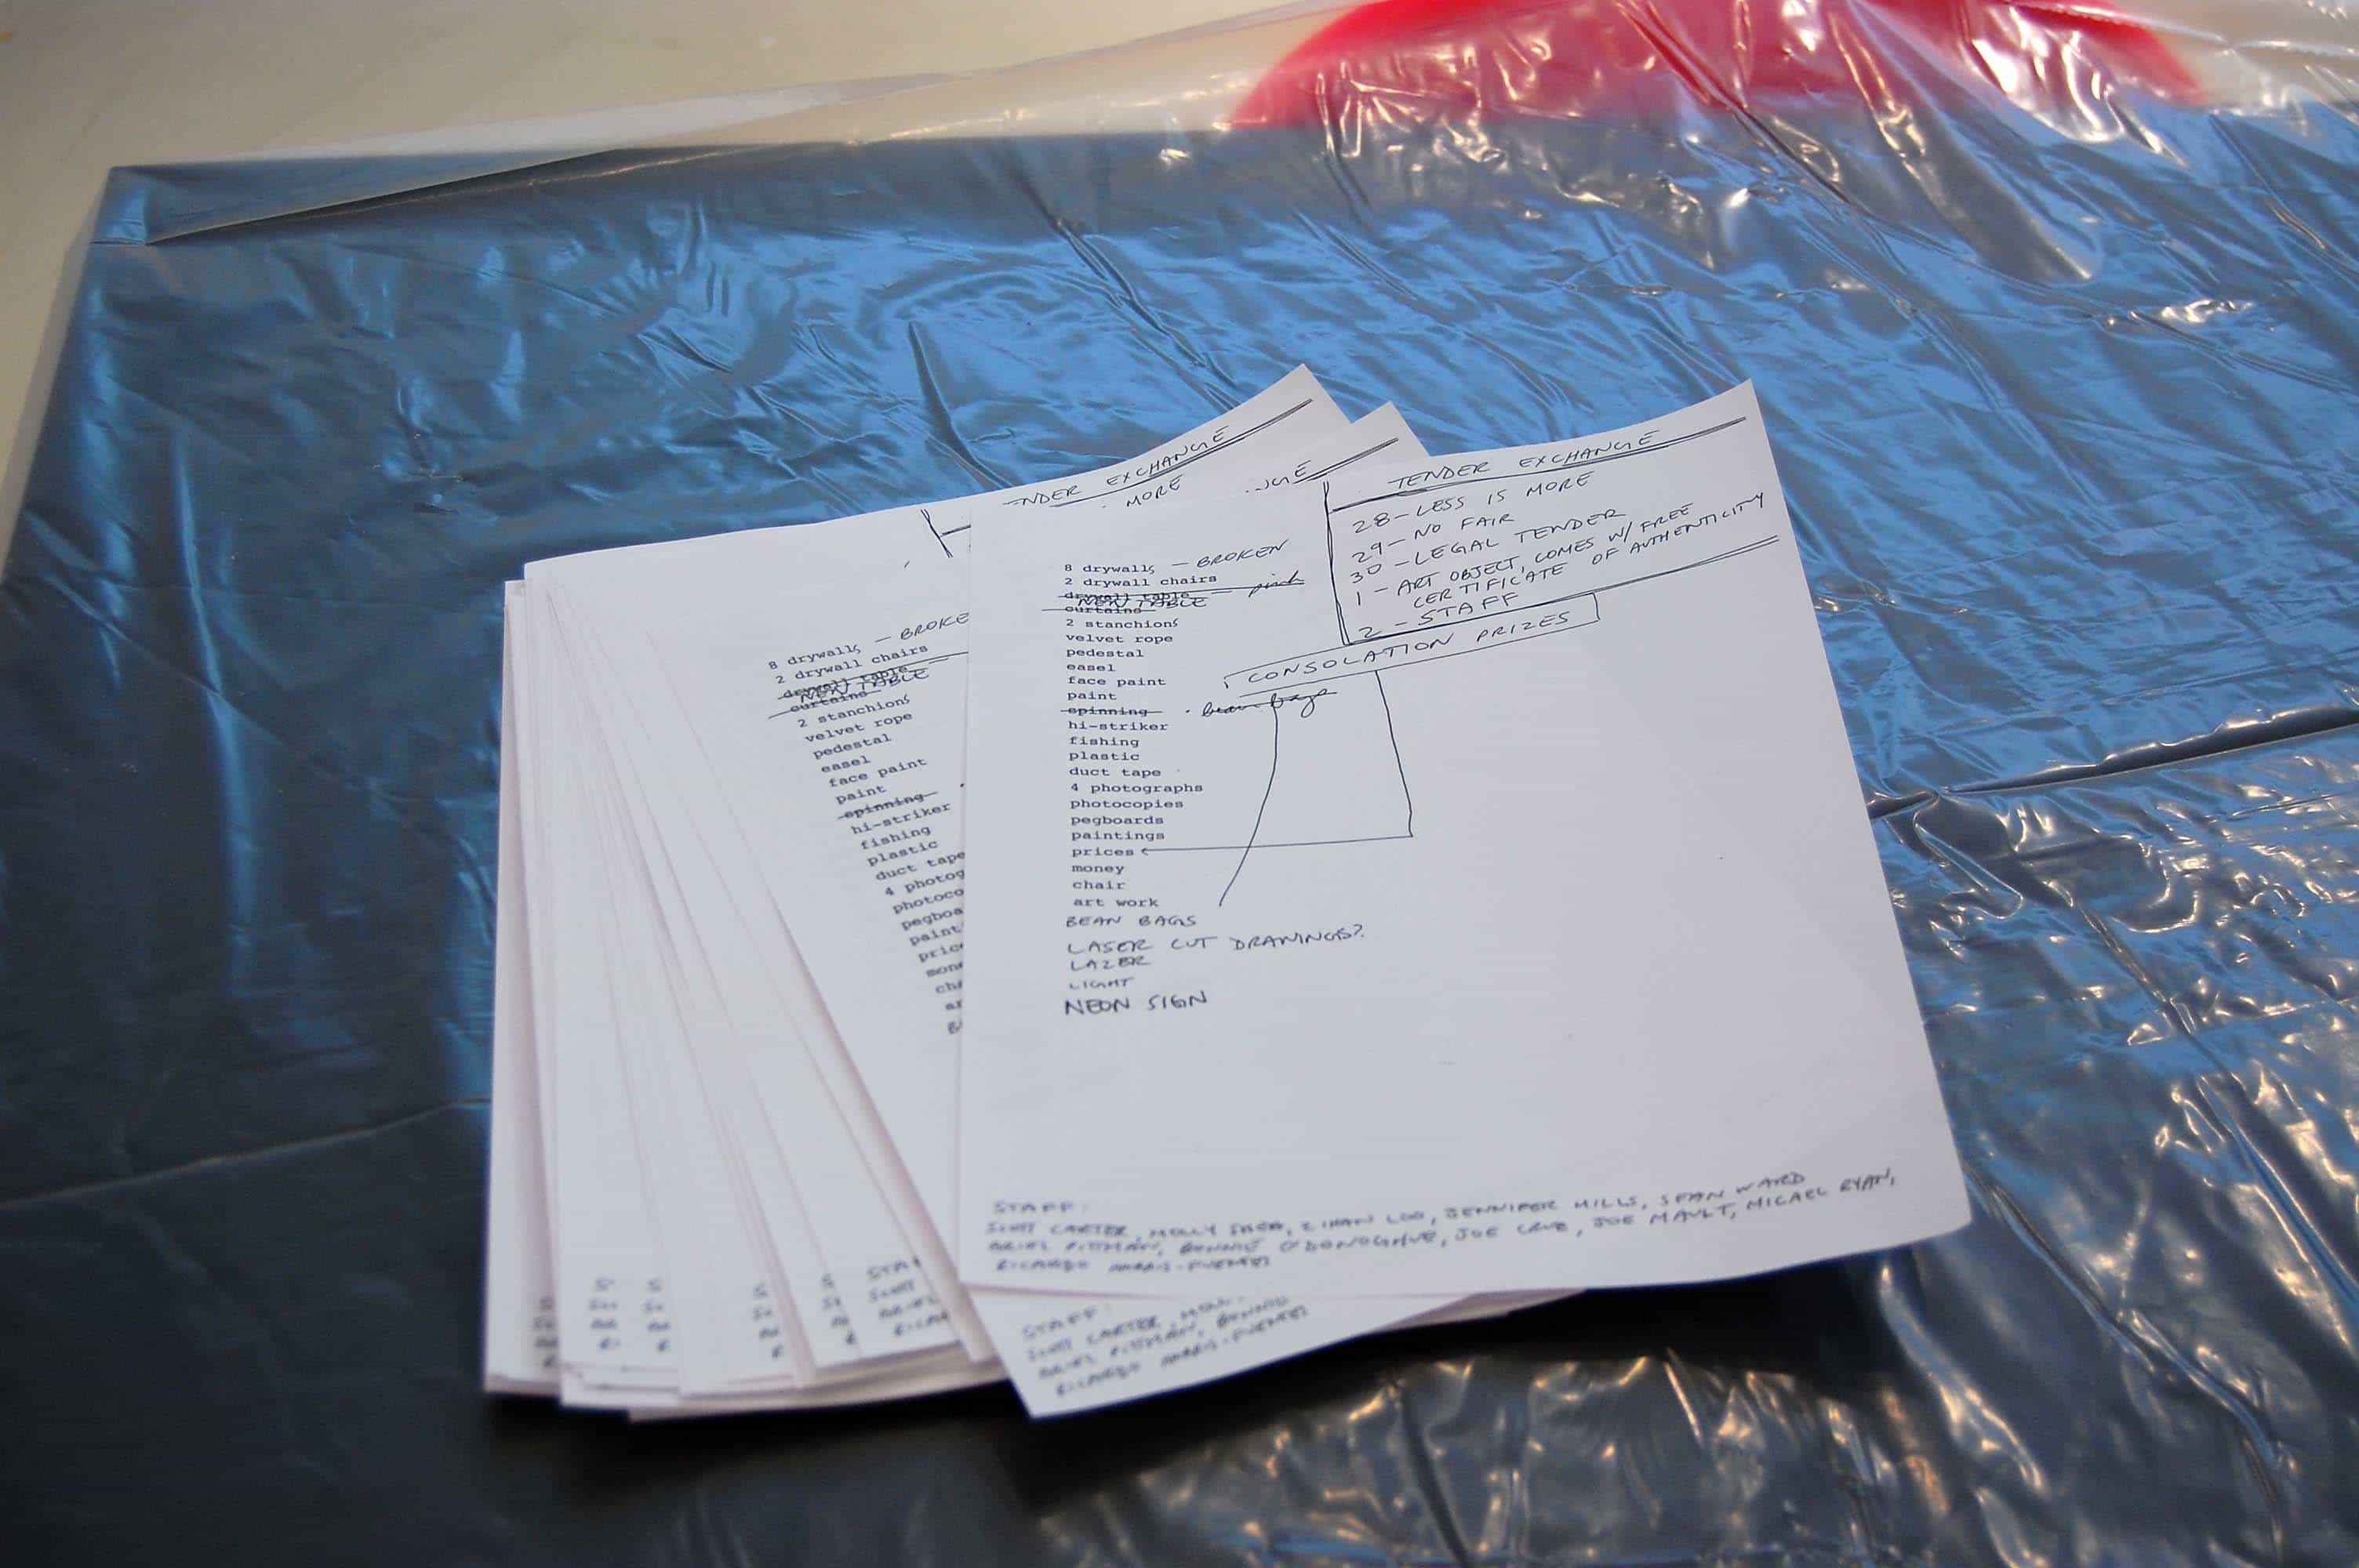 TENDER EXCHANGE
28 - LESS IS MORE
29 - NO FAIR
30 - LEGAL TENDER
1 - ART OBJECT, COMES W/ FREE
CERTIFICATE OF AUTHENTICITY
2 - STAFF
CONSOLATION PRIZES
8 drywalls - BROKEN
2 drywall chairs
drywall table
NEW TABLE
curtains
2 stanchions
velvet rope
pedestal
easel
face paint
paint
spinning · bean bags
hi-striker
fishing
plastic
duct tape
4 photographs
photocopies
pegboards
paintings
prices
money
chair
art work
BEAN BAGS
LASER CUT DRAWINGS?
LAZER
LIGHT
NEON SIGN
STAFF:
SCOTT CARTER, MOLLY SHEA, ZIHAN LOO, JENNIFER MILLS, SEAN WARD
ARIEL PITTMAN, BONNIE O'DONOGHUE, JOE CRUZ, JOE MAULT, MICAEL RYAN,
RICARDO HARRIS-FUENTES
NDER EXCHANGE
MORE
8 drywalls - BROKE
2 drywall chairs
drywall table
NEW TABLE
curtains
2 stanchions
velvet rope
pedestal
easel
face paint
paint
spinning
hi-striker
fishing
plastic
duct tape
4 photog
photoco
pegboa
paint
pric
mon
ch
ar
STAFF:
SCOTT CARTER, MOLL
ARIEL PITTMAN, BONNIE
RICARDO HARRIS-FUENTES